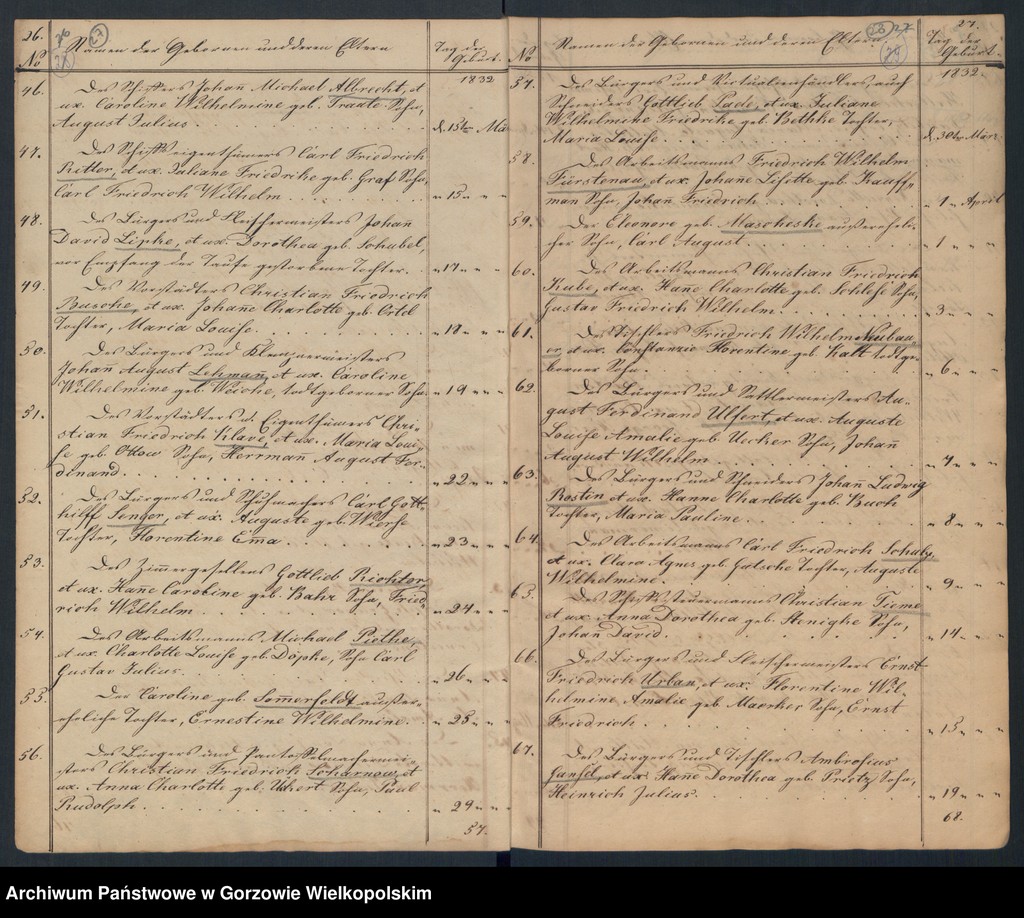 26.
27
No
Namen der Gebornen und deren Eltern
Tag der
Geburt
1832
46.
Des Schiffers Johañ Michael Albrecht, et
ux. Caroline Wilhelmine geb. Traute Sohn,
August Julius
d. 15ten März
47.
Des Schiffseigenthümers Carl Friedrich
Ritter, et ux. Juliane Friedrike geb. Graf Sohn,
Carl Friedrich Wilhelm
" 15 " "
48.
Des Bürgers und Fleischermeisters Johañ
David Lipke, et ux. Dorothea geb. Schubel,
vor Empfang der Taufe gestorbene Tochter.
" 17 " "
49.
Des Vorstädters Christian Friedrich
Busche, et ux. Johañe Charlotte geb. Ortel
Tochter, Maria Louise.
" 18 " "
50.
Des Bürgers und Klempnermeisters
Johañ August Lehmañ, et ux. Caroline
Wilhelmine geb. Weiche, todtgeborner Sohn
" 19 " "
51.
Des Vorstädters u. Eigenthümers Chri-
stian Friedrich Klave, et ux. Maria Loui-
se geb. Ottow Sohn, Herrmañ August Fer-
dinand.
" 22 " "
52.
Des Bürgers und Schuhmachers Carl Gott-
hilff Senger, et ux. Auguste geb. Werse
Tochter, Florentine Em̃a
" 23 " "
53.
Des Zim̃ergesellen Gottlieb Richter,
et ux. Hañe Caroline geb. Bahr Sohn, Fried-
rich Wilhelm
" 24 " "
54.
Des Arbeitsmanns Michael Piethe,
et ux. Charlotte Louise geb. Döpke, Sohn Carl
Gustav Julius
" 26 " "
55.
Der Caroline geb. Som̃erfeldt außer-
eheliche Tochter, Ernestine Wilhelmine.
" 28 " "
56.
Des Bürgers und Pantoffelmachermei-
sters Christian Friedrich Scharnow, et
ux. Anna Charlotte geb. Sohn, Paul
Rudolph
" 29 " "
57.
27.
28
No
Namen der Gebornen und deren Eltern
Tag der
Geburt.
1832.
57.
Des Bürgers und Victualienhändlers, auch
Schneiders Gottlieb Lade, et ux. Juliane
Wilhelmine Friedrike geb. Bethke Tochter,
Maria Louise
d. 30ten März
58.
Des Arbeitsmanns Friedrich Wilhelm
Fürstenau, et ux. Johañe Lisette geb. Kauff-
man Sohn, Johañ Friedrich
" 1 " April
59.
Der Eleonore geb. Mascheske außereheli-
cher Sohn, Carl August.
" 1 " "
60.
Des Arbeitsmanns Christian Friedrich
Kube, et ux. Hañe Charlotte geb. Schlese Sohn,
Gustav Friedrich Wilhelm
" 3 " "
61.
Des Tischlers Friedrich Wilhelm Neubau-
er, et ux. Constanzie Florentine geb. Kalt todtge-
borner Sohn.
" 6 " "
62.
Des Bürgers und Sattlermeisters Au-
gust Ferdinand Ulfert, et ux. Auguste
Louise Amalie geb. Uecker Sohn, Johañ
August Wilhelm
" 7 " "
63.
Des Bürgers und Schneiders Johañ Ludwig
Rostin et ux. Hanne Charlotte geb. Buch
Tochter, Maria Pauline
" 8 " "
64.
Des Arbeitsmanns Carl Friedrich Schulz,
et ux. Clara Agnes geb. Gutsche Tochter, Auguste
Wilhelmine.
" 9 " "
65.
Des Schiffssteuermanns Christian Tieme
et ux. Anna Dorothea geb. Henighe Sohn,
Johañ David.
" 14 " "
66.
Des Bürgers und Fleischermeisters Ernst
Friedrich Urban, et ux. Florentine Wil-
helmine Amalie geb. Maerker Sohn, Ernst
Friedrich
" 15 " "
67.
Des Bürgers und Tischlers Ambrosius
Gansel, et ux. Hañe Dorothea geb. Pretz Sohn,
Heinrich Julius.
" 19 " "
68.
Archiwum Państwowe w Gorzowie Wielkopolskim